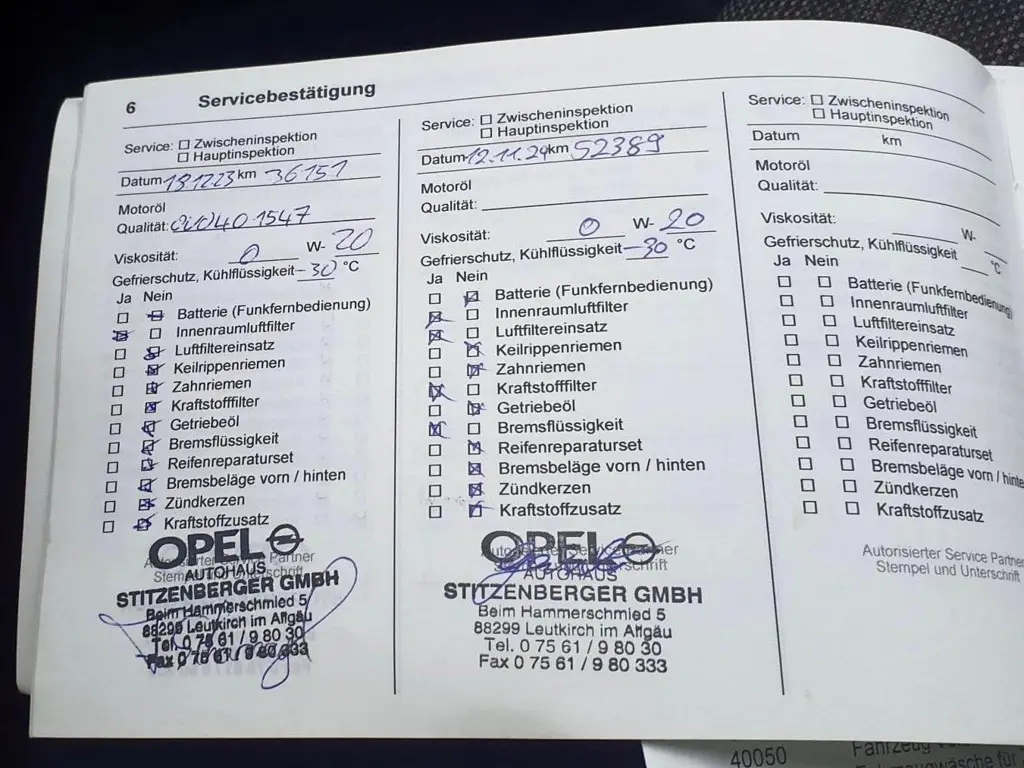 6 Servicebestätigung
Service: ☐ Zwischeninspektion
☐ Hauptinspektion
Datum 191223 km 36151
Motoröl
Qualität: 0V0401547
Viskosität: 0 W- 20
Gefrierschutz, Kühlflüssigkeit -30 °C
Ja Nein
Batterie (Funkfernbedienung)
Innenraumluftfilter
Luftfiltereinsatz
Keilrippenriemen
Zahnriemen
Kraftstofffilter
Getriebeöl
Bremsflüssigkeit
Reifenreparaturset
Bremsbeläge vorn / hinten
Zündkerzen
Kraftstoffzusatz
OPEL
Autorisierter Service Partner
Stempel und Unterschrift
AUTOHAUS
STITZENBERGER GMBH
Beim Hammerschmied 5
88299 Leutkirch im Allgäu
Tel. 0 75 61 / 9 80 30
Fax 0 75 61 / 9 80 333
Service: ☐ Zwischeninspektion
☐ Hauptinspektion
Datum 12.11.24 km 52389
Motoröl
Qualität:
Viskosität: 0 W- 20
Gefrierschutz, Kühlflüssigkeit -30 °C
Ja Nein
Batterie (Funkfernbedienung)
Innenraumluftfilter
Luftfiltereinsatz
Keilrippenriemen
Zahnriemen
Kraftstofffilter
Getriebeöl
Bremsflüssigkeit
Reifenreparaturset
Bremsbeläge vorn / hinten
Zündkerzen
Kraftstoffzusatz
OPEL
Autorisierter Service Partner
Stempel und Unterschrift
AUTOHAUS
STITZENBERGER GMBH
Beim Hammerschmied 5
88299 Leutkirch im Allgäu
Tel. 0 75 61 / 9 80 30
Fax 0 75 61 / 9 80 333
Service: ☐ Zwischeninspektion
☐ Hauptinspektion
Datum km
Motoröl
Qualität:
Viskosität: W-
Gefrierschutz, Kühlflüssigkeit °C
Ja Nein
Batterie (Funkfernbedienung)
Innenraumluftfilter
Luftfiltereinsatz
Keilrippenriemen
Zahnriemen
Kraftstofffilter
Getriebeöl
Bremsflüssigkeit
Reifenreparaturset
Bremsbeläge vorn / hinte
Zündkerzen
Kraftstoffzusatz
Autorisierter Service Partner
Stempel und Unterschrift
40050 Fahrzeug